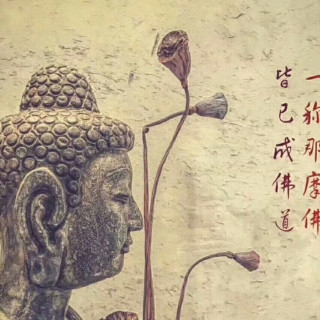 一称那摩佛
皆已成佛道